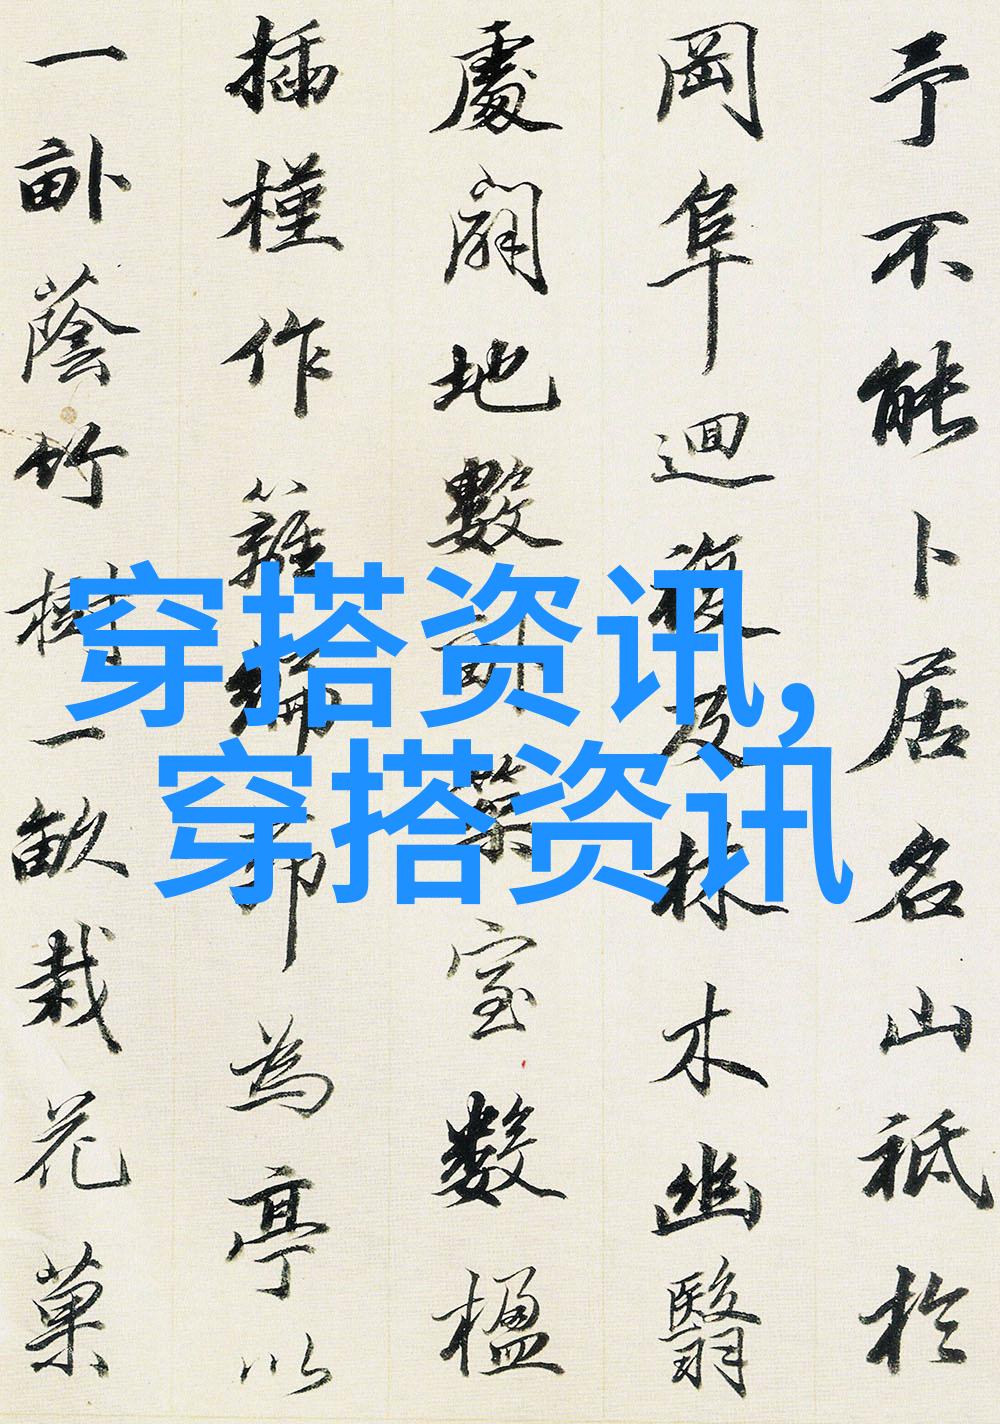 予不能卜居名山祗於
岡阜迴複及林木幽翳
處闢地數畝築室數楹
插槿作籬編茆為亭以
一畝蔭竹樹一畝栽花菓
穿搭资讯,
穿搭资讯